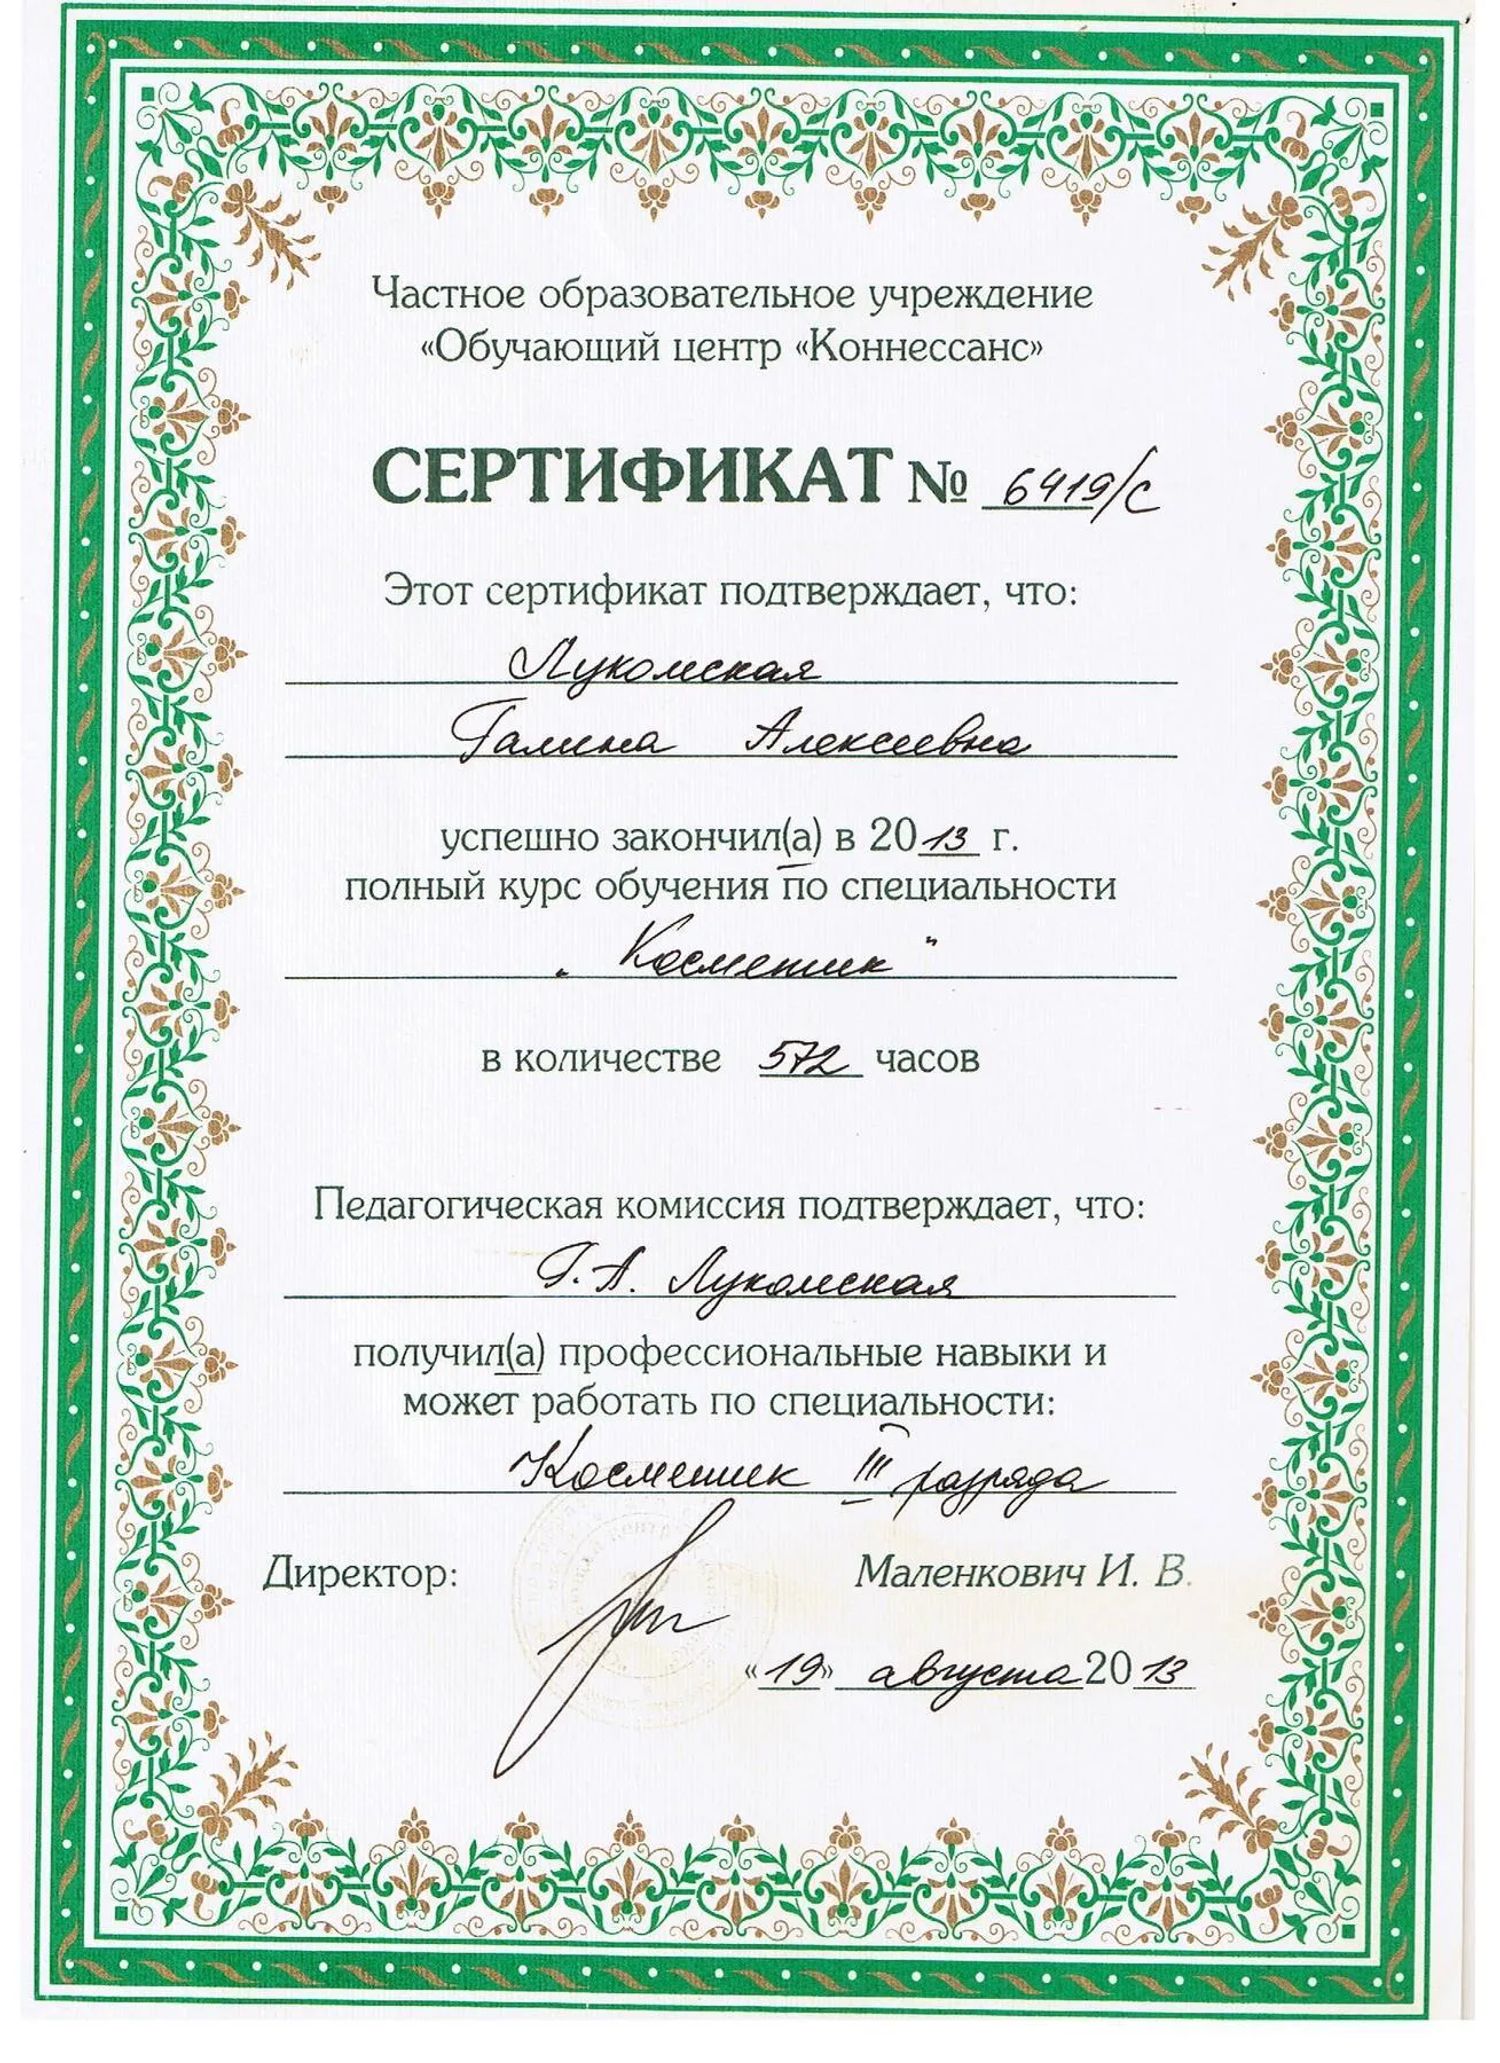 Частное образовательное учреждение
«Обучающий центр «Коннессанс»
СЕРТИФИКАТ № 6419/С
Этот сертификат подтверждает, что:
Лукомская
Галина Алексеевна
успешно закончил(а) в 2013 г.
полный курс обучения по специальности
„Косметик"
в количестве 572 часов
Педагогическая комиссия подтверждает, что:
Г.А. Лукомская
получил(а) профессиональные навыки и
может работать по специальности:
Косметик III разряда
Директор: Маленкович И. В.
«19» августа 2013